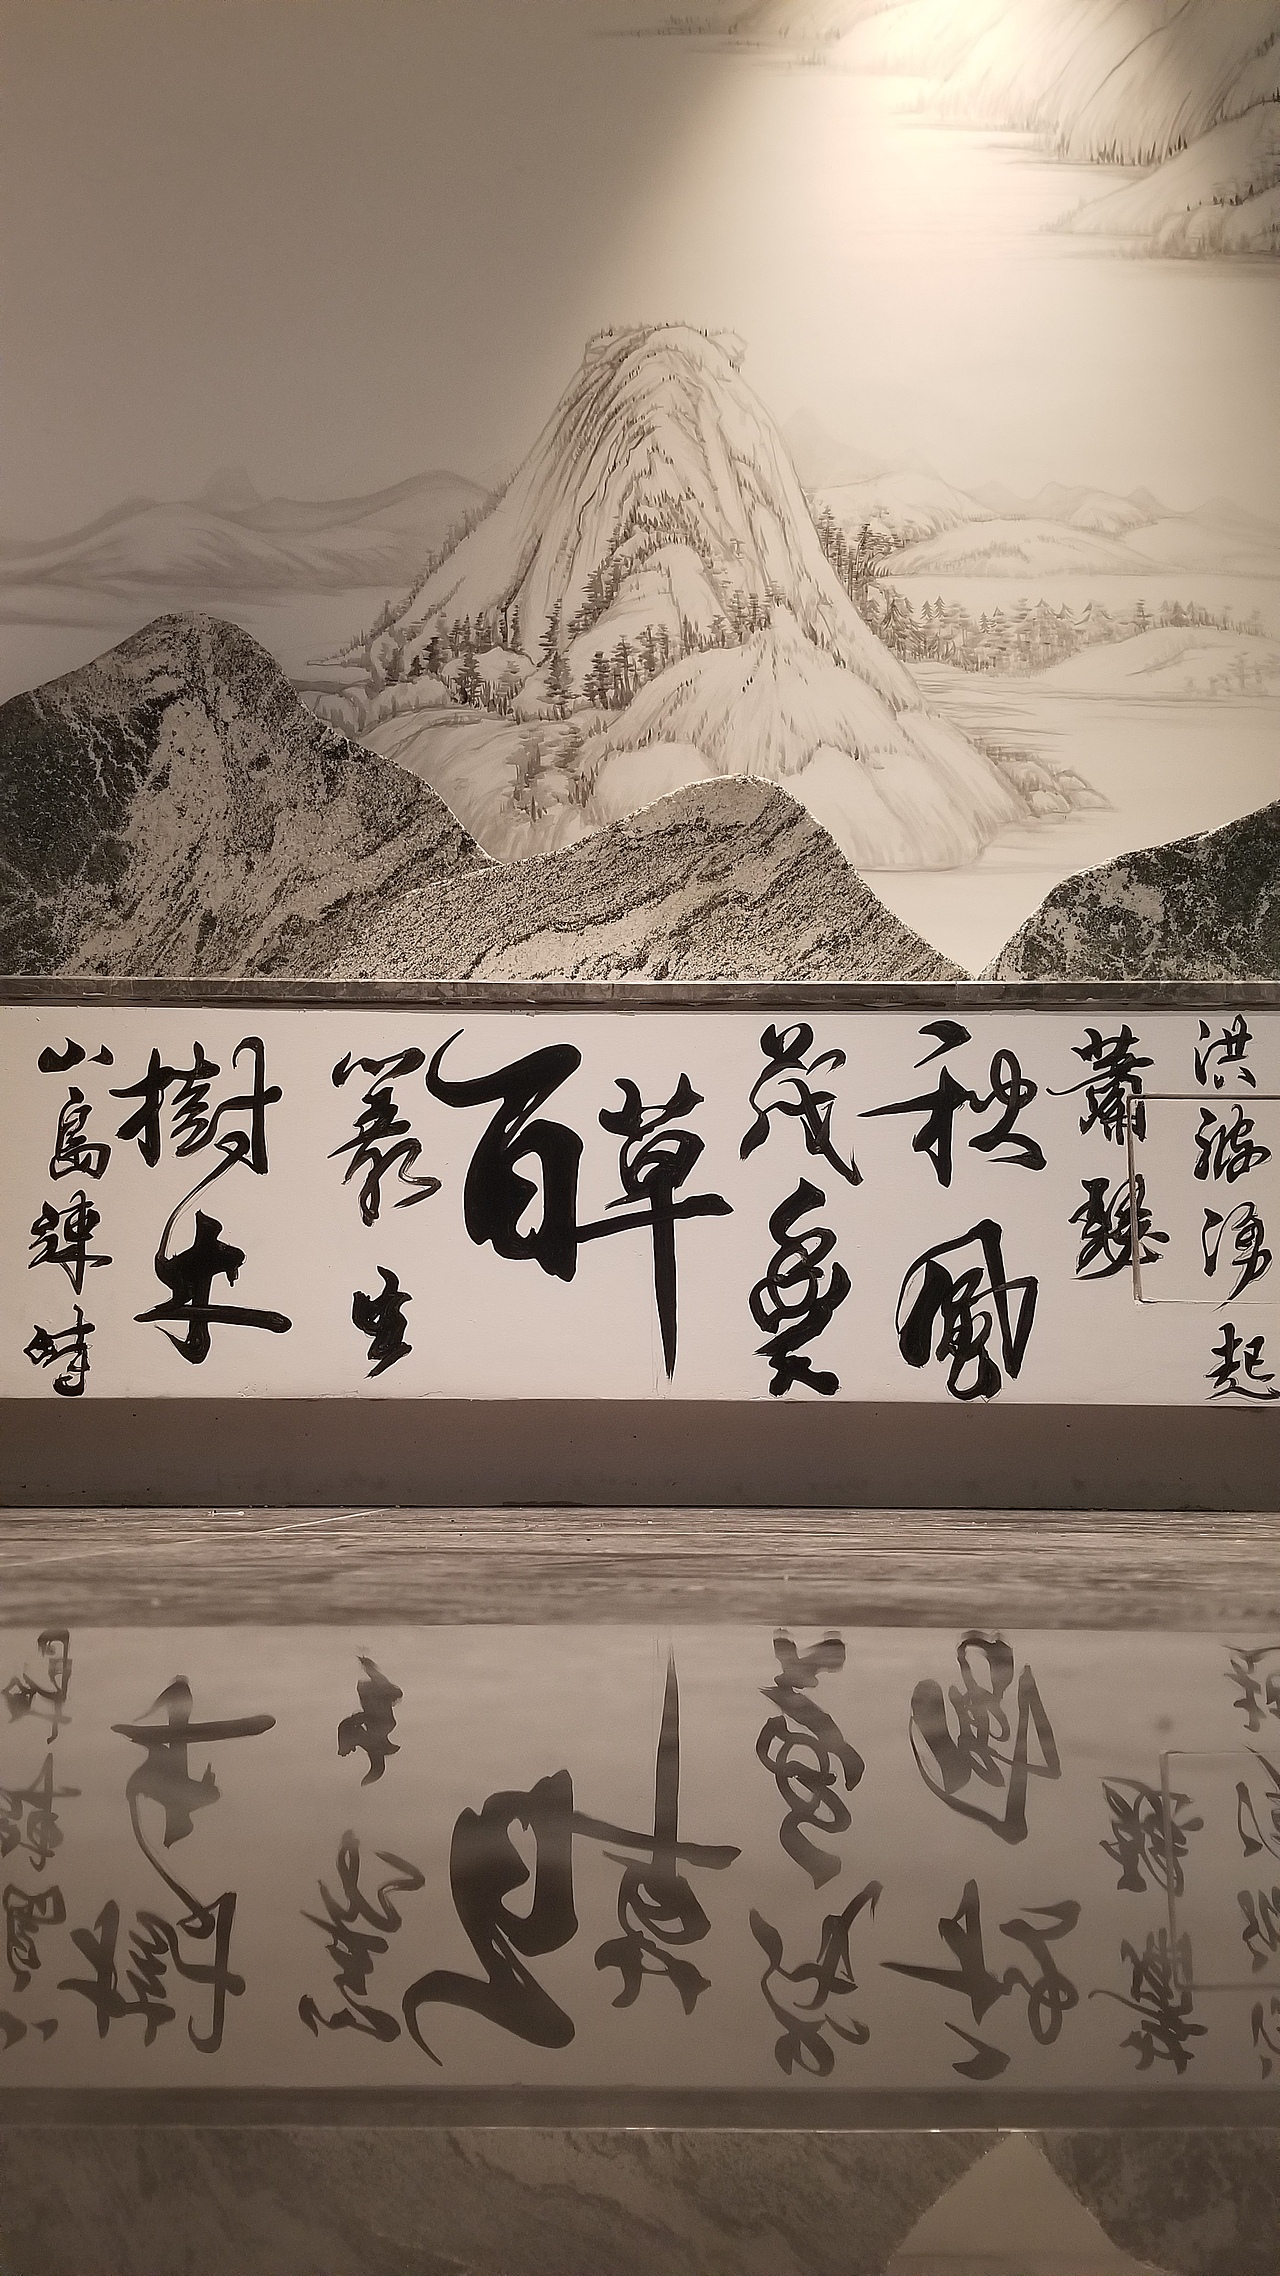 山島竦峙
樹木
叢生
百草
茂豐
秋風
蕭瑟
洪波湧起